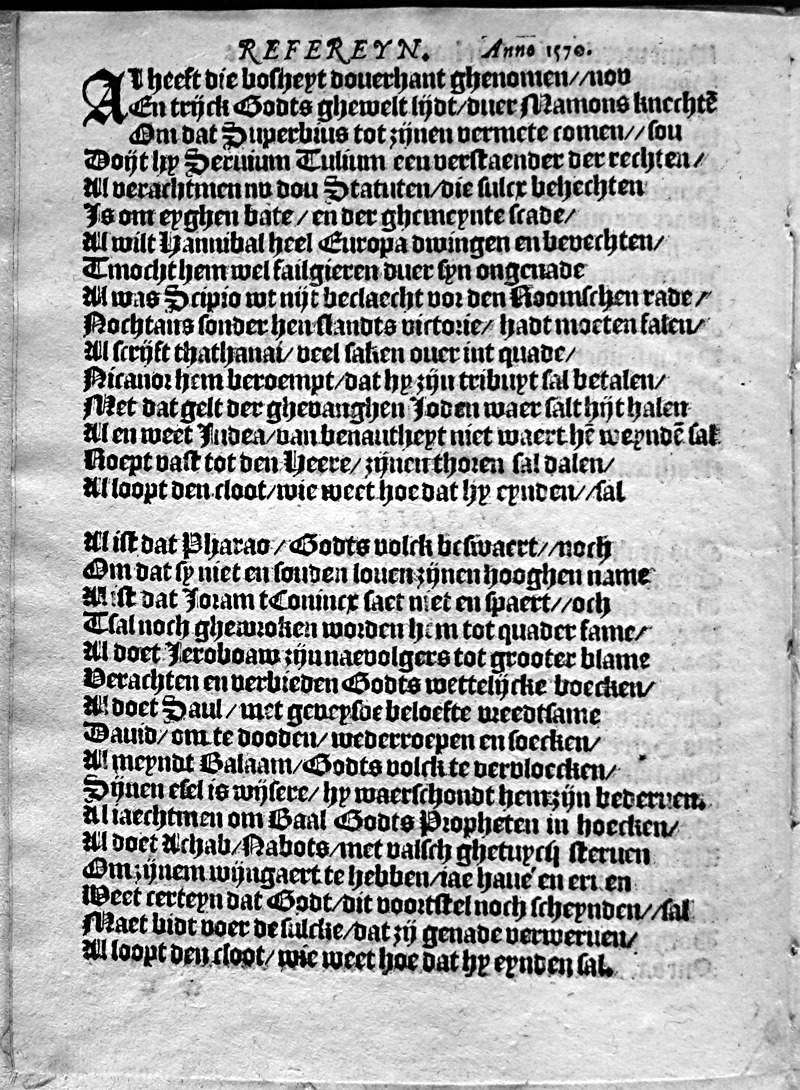 REFEREYN. Anno 1570.
Al heeft die bosheyt douerhant ghenomen//nou
En trijck Godts ghewelt lijdt/duer Mamons knechtē
Om dat Superbius tot zijnen vermete comen//sou
Doijt hy Seruium Tulium een verstaender der rechten/
Al verachtmen nv dou Statuten/die sulcx behechten
Is om eyghen bate/en der ghemeynte scade/
Al wilt Hannibal heel Europa dwingen en bevechten/
Tmocht hem wel failgieren duer syn ongenade
Al was Scipio wt nijt beclaecht vor den Roomschen rade/
Nochtans sonder hen standts victorie/ hadt moeten falen/
Al scrijft thathanai/ veel saken ouer int quade/
Nicanor hem beroempt/dat hy zijn tribuyt sal betalen/
Met dat gelt der ghevanghen Joden waer salt hijt halen
Al en weet Judea/van benautheyt niet waert hē weyndē sal
Roept vast tot den Heere/ zijnen thoren sal dalen/
Al loopt den cloot/wie weet hoe dat hy eynden//sal
Al ist dat Pharao/Godts volck beswaert//noch
Om dat sy niet en souden louen zijnen hooghen name
Al ist dat Joram tConincx saet niet en spaert//och
Tsal noch ghewroken worden hem tot quader fame/
Al doet Jeroboam zijn naevolgers tot grooter blame
Verachten en verbieden Godts wettelijcke boecken/
Al doet Saul/met geveysde beloefte meedtsame
Dauid/om te dooden/wederroepen en soecken/
Al meyndt Balaam/Godts volck te vervloecken/
Sijnen esel is wijsere/hy waerschondt hem zijn bederuen.
Al iaechtmen om Baal Godts Propheten in hoecken/
Al doet Achab/Nabots/met valsch ghetuycq steruen
Om zijnem wijngaert te hebben/iae haue en eruen
Weet certeyn dat Godt/dit voortstel noch scheynden//sal
Maet bidt voer de sulcke/dat zij genade verweruen/
Al loopt den cloot/wie weet hoe dat hy eynden sal.